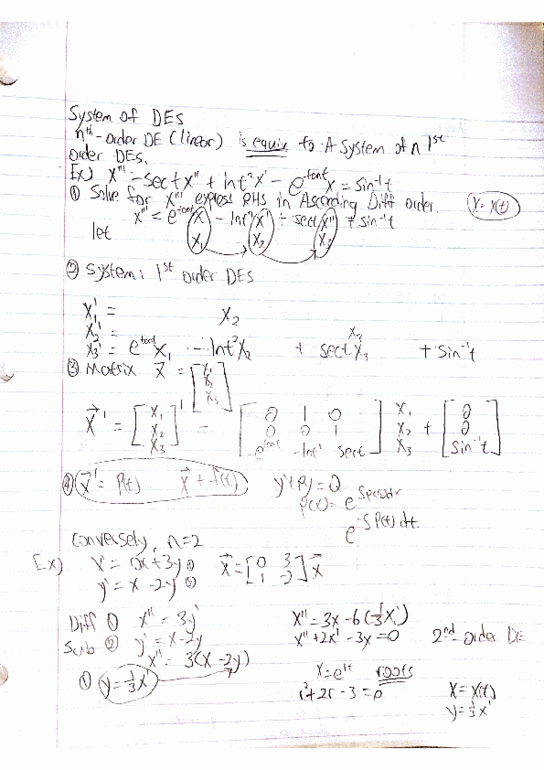 System of DEs
nth-order DE (linear) is equiv to A system of n 1st
order DEs.
Ex) x''' - sect x'' + lnt² x' - e^tant x = sin⁻¹t
① Solve for x''' express RHS in Ascending Diff order. x = x(t)
x''' = e^tant x - lnt² x' + sect x'' + sin⁻¹t
let x₁ x₂ x₃
② System: 1st order DEs
x₁' = x₂
x₂' = x₃
x₃' = e^tant x₁ - lnt² x₂ + sect x₃ + sin⁻¹t
③ Matrix x⃗ = [x₁ x₂ x₃]
x⃗' = [x₁ x₂ x₃]' = [0 1 0 0 0 1 e^tant -lnt² sect] x₁ x₂ x₃ + [0 0 sin⁻¹t]
④ x⃗' = P(t) x⃗ + f(t) y' + Py = Q
e^∫P(x)dx
e^-∫P(t)dt
Conversely, n=2
Ex) x' = 0x + 3y ① x⃗ = [0 3 1 -2] x⃗
y' = x - 2y ②
Diff ① x'' = 3y' x'' = 3x - 6(⅓x')
Sub ② y' = x - 2y x'' + 2x' - 3x = 0 2nd order DE
x'' = 3(x - 2y)
① y = ⅓x' x = e^rt roots
r² + 2r - 3 = 0 x = x(t)
y = ⅓x'